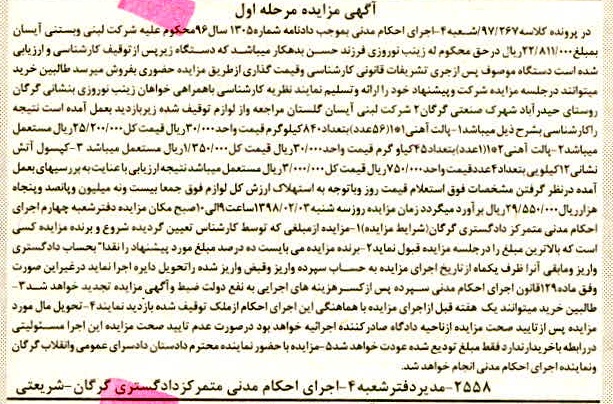 آگهی مزایده مرحله اول
در پرونده کلاسه ۹۷/۲۶۷/شعبه۴-اجرای احکام مدنی بموجب دادنامه شماره۱۳۰۵ سال۹۶محکوم علیه شرکت لبنی وبستنی آیسان
بمبلغ۲۲/۸۱۱/۰۰۰ریال درحق محکوم له زینب نوروزی فرزند حسن بدهکار میباشد که دستگاه زیرپس ازتوقیف کارشناسی و ارزیابی
شده است دستگاه موصوف پس ازجری تشریفات قانونی کارشناسی وقیمت گذاری ازطریق مزایده حضوری بفروش میرسد طالبین خرید
میتوانند درجلسه مزایده شرکت وپیشنهاد خود را ارائه وتسلیم نمایند نظریه کارشناسی باهمراهی خواهان زینب نوروزی بنشانی گرگان
روستای حیدرآباد شهرک صنعتی گرگان۲ شرکت لبنی آیسان گلستان مراجعه واز لوازم توقیف شده زیربازدید بعمل آمده است نتیجه
راکارشناسی بشرح ذیل میباشد۱-پالت آهنی۱۰۱(۵۶عدد)بتعداد۸۴۰کیلوگرم قیمت واحد۳۰/۰۰۰ریال قیمت کل۲۵/۲۰۰/۰۰۰ریال مستعمل
میباشد۲-پالت آهنی۱۰۲(۱عدد)بتعداد۴۵کیلو گرم قیمت واحد۳۰/۰۰۰ریال قیمت کل۱/۳۵۰/۰۰۰ریال مستعمل میباشد ۳-کپسول آتش
نشانی۱۲کیلویی بتعداد۴عددقیمت واحد۷۵۰/۰۰۰ریال قیمت کل۳/۰۰۰/۰۰۰ریال مستعمل میباشدنتیجه ارزیابی باعنایت به بررسیهای بعمل
آمده درنظر گرفتن مشخصات فوق استعلام قیمت روز وباتوجه به استهلاک ارزش کل لوازم فوق جمعا بیست ونه میلیون وپانصد وپنجاه
هزارریال۲۹/۵۵۰/۰۰۰ریال برآورد میگردد زمان مزایده روزسه شنبه۱۳۹۸/۰۲/۰۳ساعت۹الی۱۰صبح مکان مزایده دفترشعبه چهارم اجرای
احکام مدنی متمرکز دادگستری گرگان(شرایط مزایده)۱-مزایده ازمبلغی که توسط کارشناس تعیین گردیده شروع و برنده مزایده کسی
است که بالاترین مبلغ را درجلسه مزایده قبول نماید۲-برنده مزایده می بایست ده درصد مبلغ مورد پیشنهاد را نقدا" بحساب دادگستری
واریز ومابقی آنرا ظرف یکماه ازتاریخ اجرای مزایده به حساب سپرده واریز وقبض واریز شده راتحویل دایره اجرا نماید درغیراین صورت
وفق ماده۱۲۹قانون اجرای احکام مدنی سپرده پس ازکسرهزینه های اجرایی به نفع دولت ضبط وآگهی مزایده تجدید خواهد شد۳-
طالبین خرید میتوانند یک هفته قبل ازاجرای مزایده با هماهنگی این اجرای احکام ازملک توقیف شده بازدید نمایند۴-تحویل مال مورد
مزایده پس ازتایید صحت مزایده ازناحیه دادگاه صادرکننده اجرائیه خواهد بود درصورت عدم تایید صحت مزایده این اجرا مسئولیتی
دررابطه باخریدارندارد فقط مبلغ تودیع شده عودت خواهد شد۵-مزایده با حضور نماینده محترم دادستان دادسرای عمومی وانقلاب گرگان
ونماینده اجرای احکام مدنی انجام خواهد شد.
۲۵۵۸-مدیردفترشعبه۴-اجرای احکام مدنی متمرکزدادگستری گرگان-شریعتی